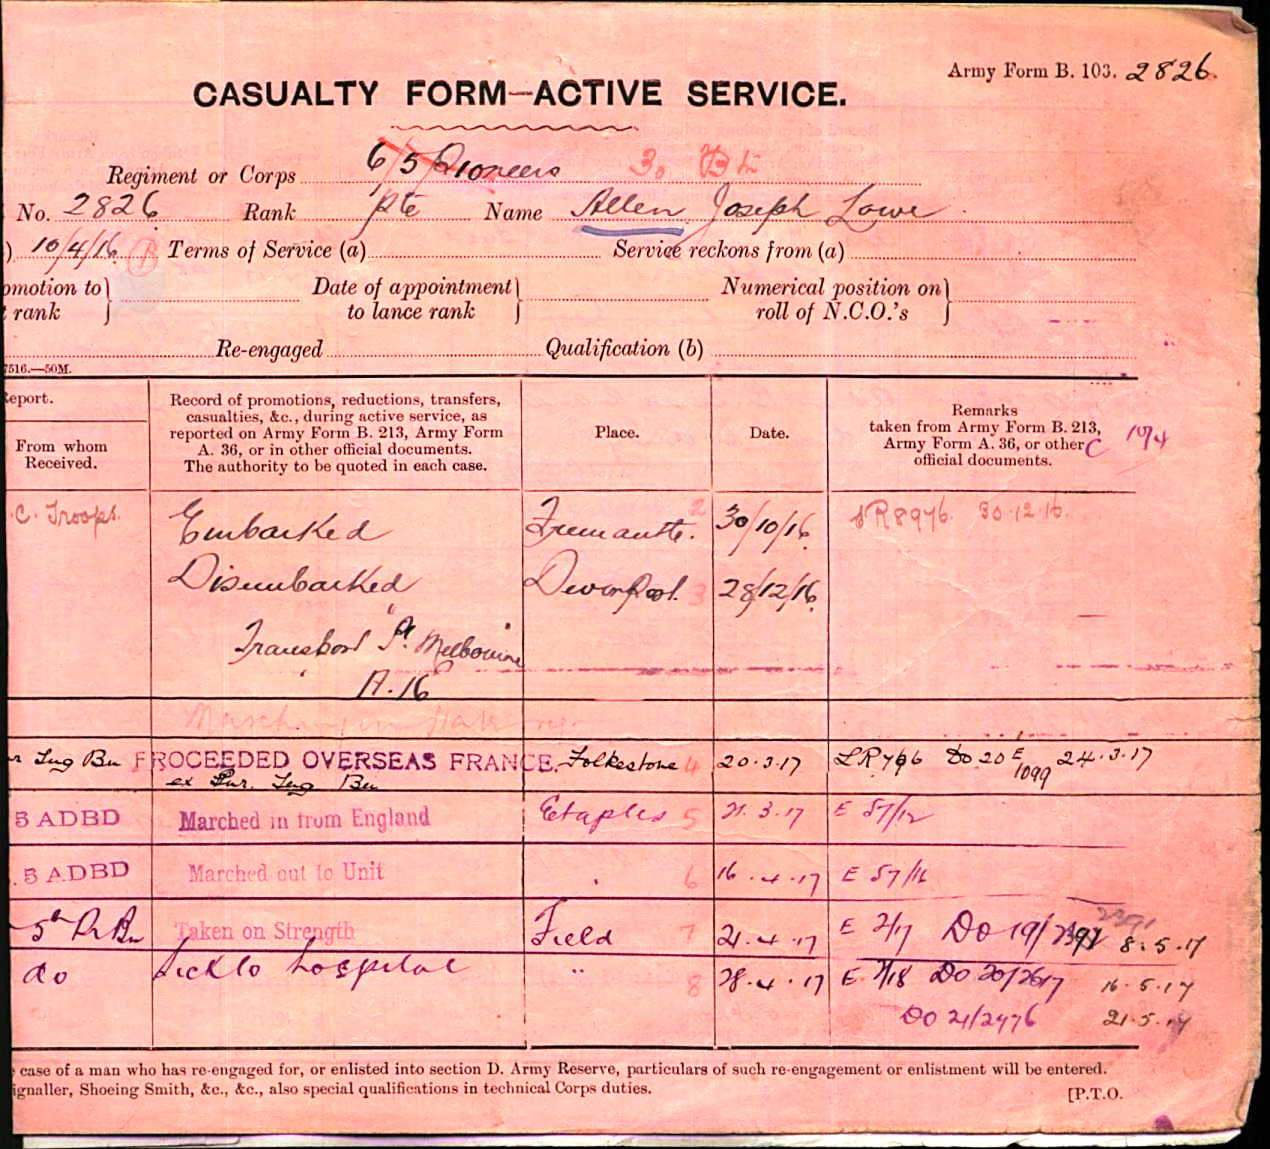 Army Form B. 103. 2826.
CASUALTY FORM—ACTIVE SERVICE.
Regiment or Corps 6/5 Pioneers 3o
No. 2826 Rank Pte Name Allen Joseph Lowe
) 10/4/16 Terms of Service (a) Service reckons from (a)
omotion to } Date of appointment } Numerical position on }
rank to lance rank roll of N.C.O.'s
Re-engaged Qualification (b)
7516.—50M.
Report.
From whom
Received.
Record of promotions, reductions, transfers,
casualties, &c., during active service, as
reported on Army Form B. 213, Army Form
A. 36, or in other official documents.
The authority to be quoted in each case.
Place.
Date.
Remarks
taken from Army Form B. 213,
Army Form A. 36, or other
official documents.
C 10/4
.C. Troops. Embarked Fremantle. 2 30/10/16 30.12.16.
Disembarked Devonport. 3 28/12/16
Transport "Pt. Melbourne"
A.16
Trng Bn PROCEEDED OVERSEAS FRANCE. Folkestone 4 20.3.17 DO 20 E/1099 24.3.17
ex Pnr. Trng Bn
5 ADBD Marched in from England Etaples 5 21.3.17 E 57/12
5 ADBD Marched out to Unit 6 16.4.17 E 57/16
5th Pr Bn Taken on Strength Field 7 21.4.17 E 2/17 DO 19/ 8.5.17
do Sick to hospital " 8 28.4.17 E 2/18 DO 20/2617 16.5.17
DO 21/2476 21.5.17
case of a man who has re-engaged for, or enlisted into section D. Army Reserve, particulars of such re-engagement or enlistment will be entered.
ignaller, Shoeing Smith, &c., &c., also special qualifications in technical Corps duties.
[P.T.O.